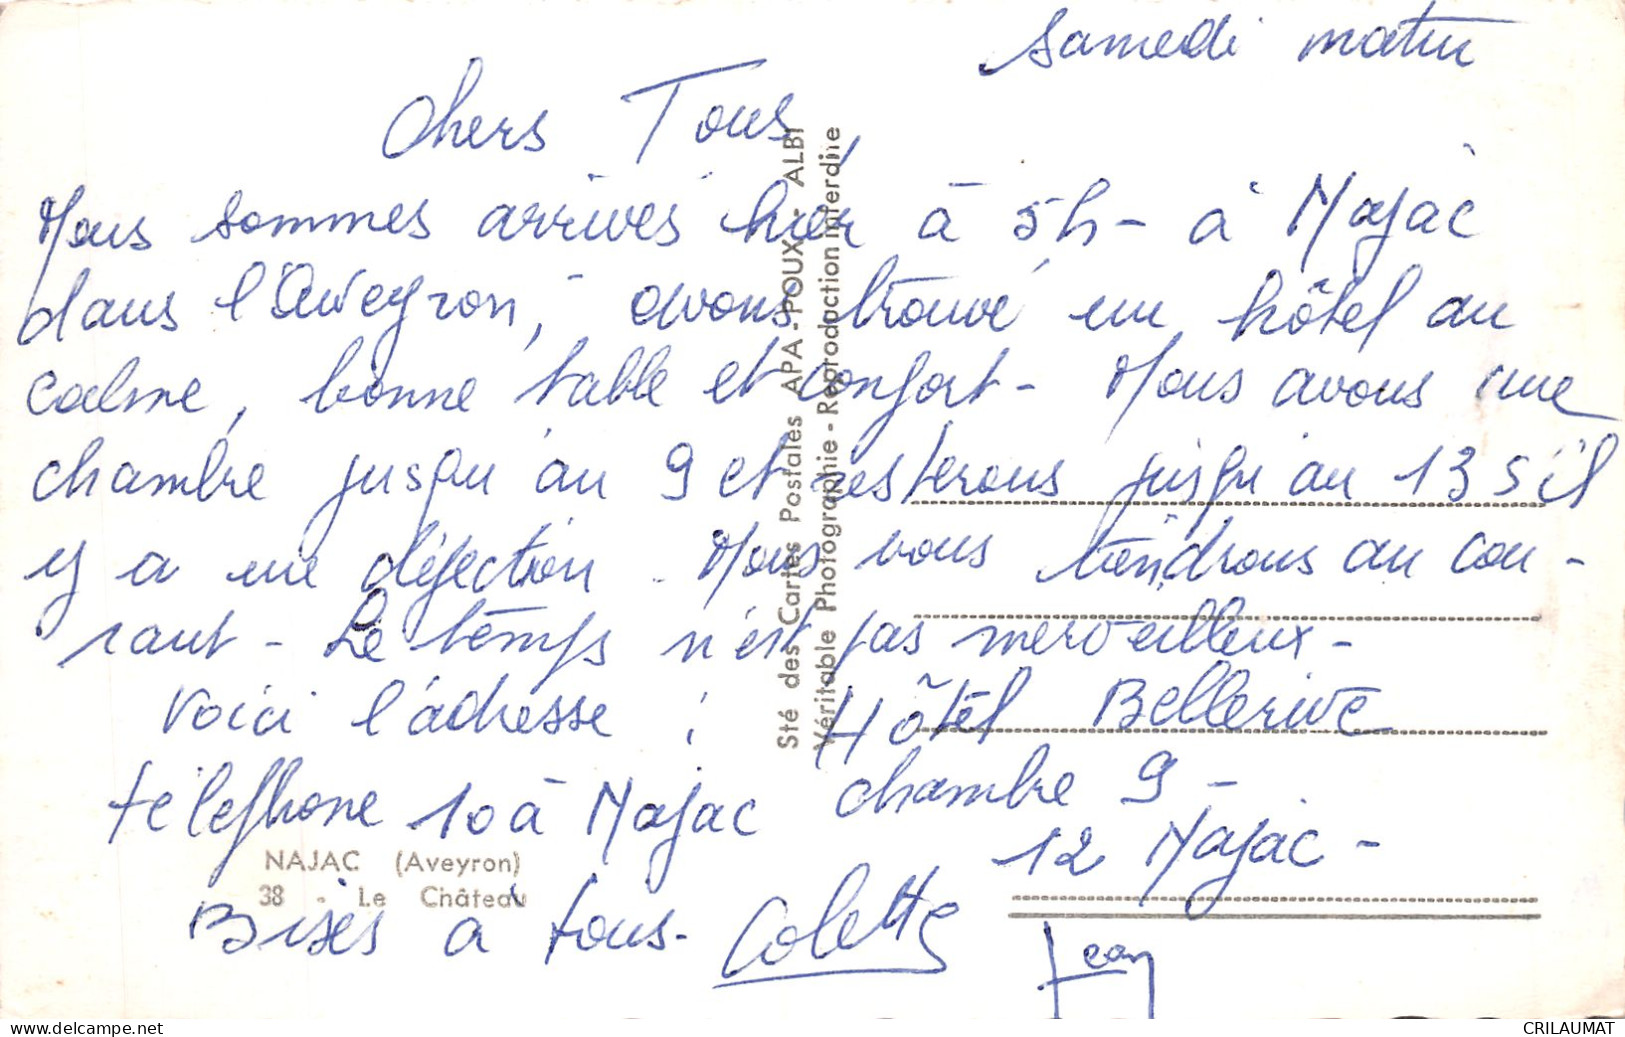 Samedi matin
Chers Tous,
Nous sommes arrivés hier à 5h - à Najac
dans l'Aveyron, avons trouvé un hôtel au
calme, bonne table et confort - Nous avons une
chambre jusqu'au 9 et resterons jusqu'au 13 s'il
y a une défection - Nous vous tiendrons au cou-
rant - Le temps n'est pas merveilleux -
Voici l'adresse : Hôtel Bellerive
chambre 9 -
téléphone 10 à Najac
12 Najac -
Bises à tous - Colette
Jean
NAJAC (Aveyron)
38 - Le Château
Sté des Cartes Postales APA-POUX - ALBI
Véritable Photographie - Reproduction interdite
CRILAUMAT
www.delcampe.net